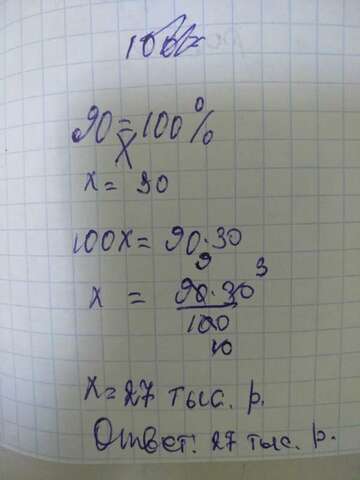 90 = 100%
x
x = 30
100x = 90·30
9 3
x = 90·30
100
10
x = 27 тыс. р.
Ответ: 27 тыс. р.